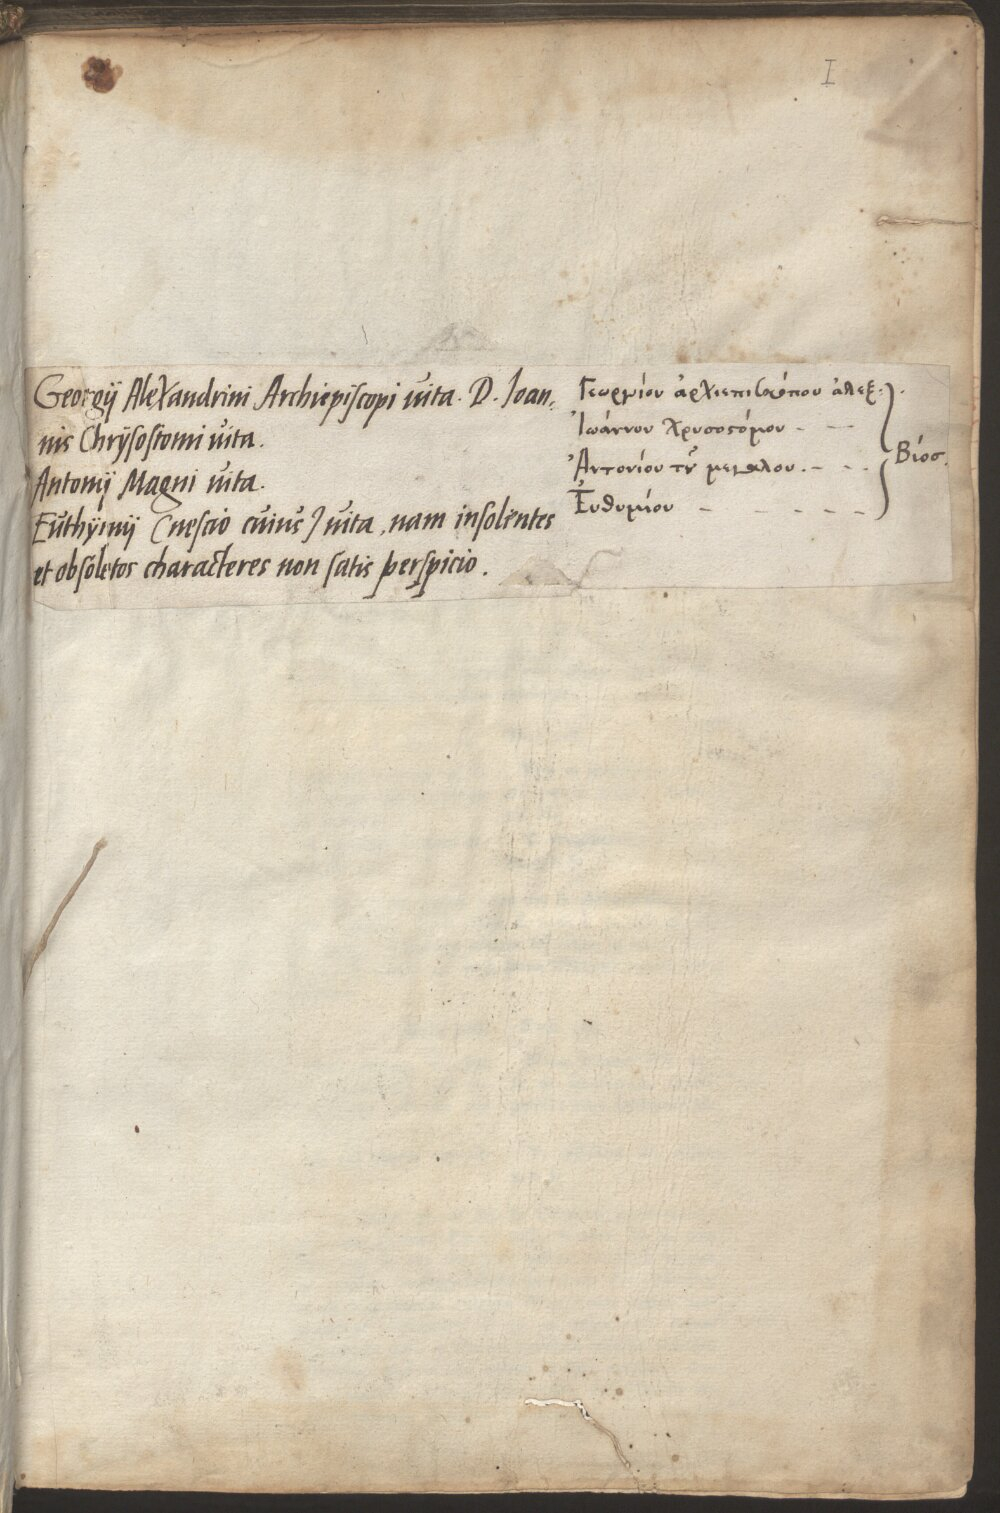 I
Georgij Alexandrini Archiepiscopi uita. D. Ioan,
nis Chrÿsostomi uita.
Antonij Magni uita.
Euthÿmij (nescio cuius) uita, nam insolentes
et obsoletos characteres non satis perspicio.
Γεωργίου ἀρχιεπισκόπου ἀλεξ.
Ἰωάννου Χρυσοστόμου - - -
Ἀντονίου τοῦ μεγαλου. - - -
Ἐυθυμίου - - - - - -
Βίος.